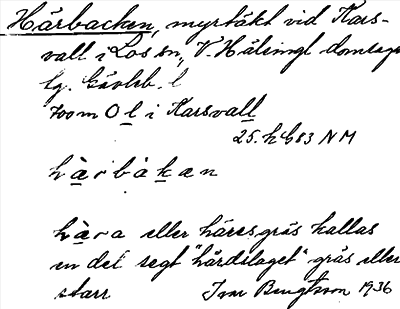 Härbacken, myrtäkt vid Kars-
vall i Los sn, V. Hälsingl domsaga
lg. Gävleb. l
700 m O l i Karsvall
25. NM
hàrbàkan
hàra eller häresgräs kallas
en del segt "hårdslaget" gräs eller
starr Ivar Bengtsson 1936